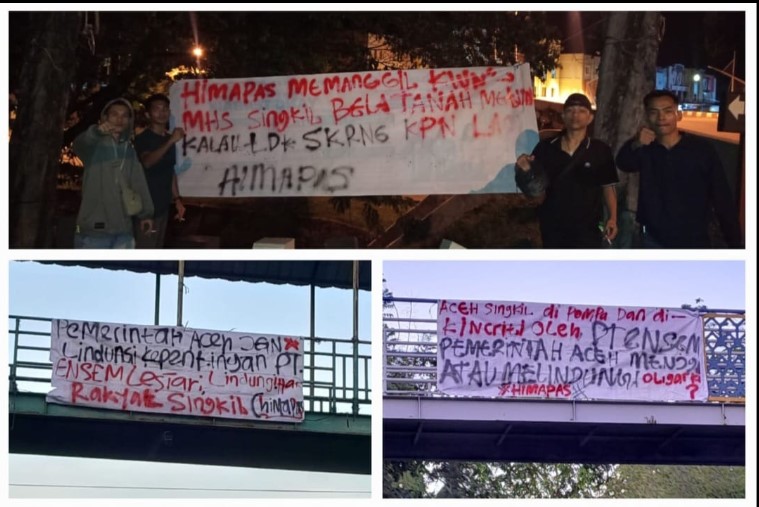 HIMAPAS MEMANGGIL
MHS SingKil BELA TANAH
KALAU SKRNG KPN
HIMAPAS
Pemerintah Aceh JGN
Lindungi Kepentingan PT.
ENSEM Lestari, Lindungilah
RaKyat SingKiL (himapas
ACEH Singkil di Tampu Dan di-
KincriJ OLEH PT ENSEM
PEMERINTAH ACEH
ATAU MELINDUNGI OLigarki
#HIMAPAS ?